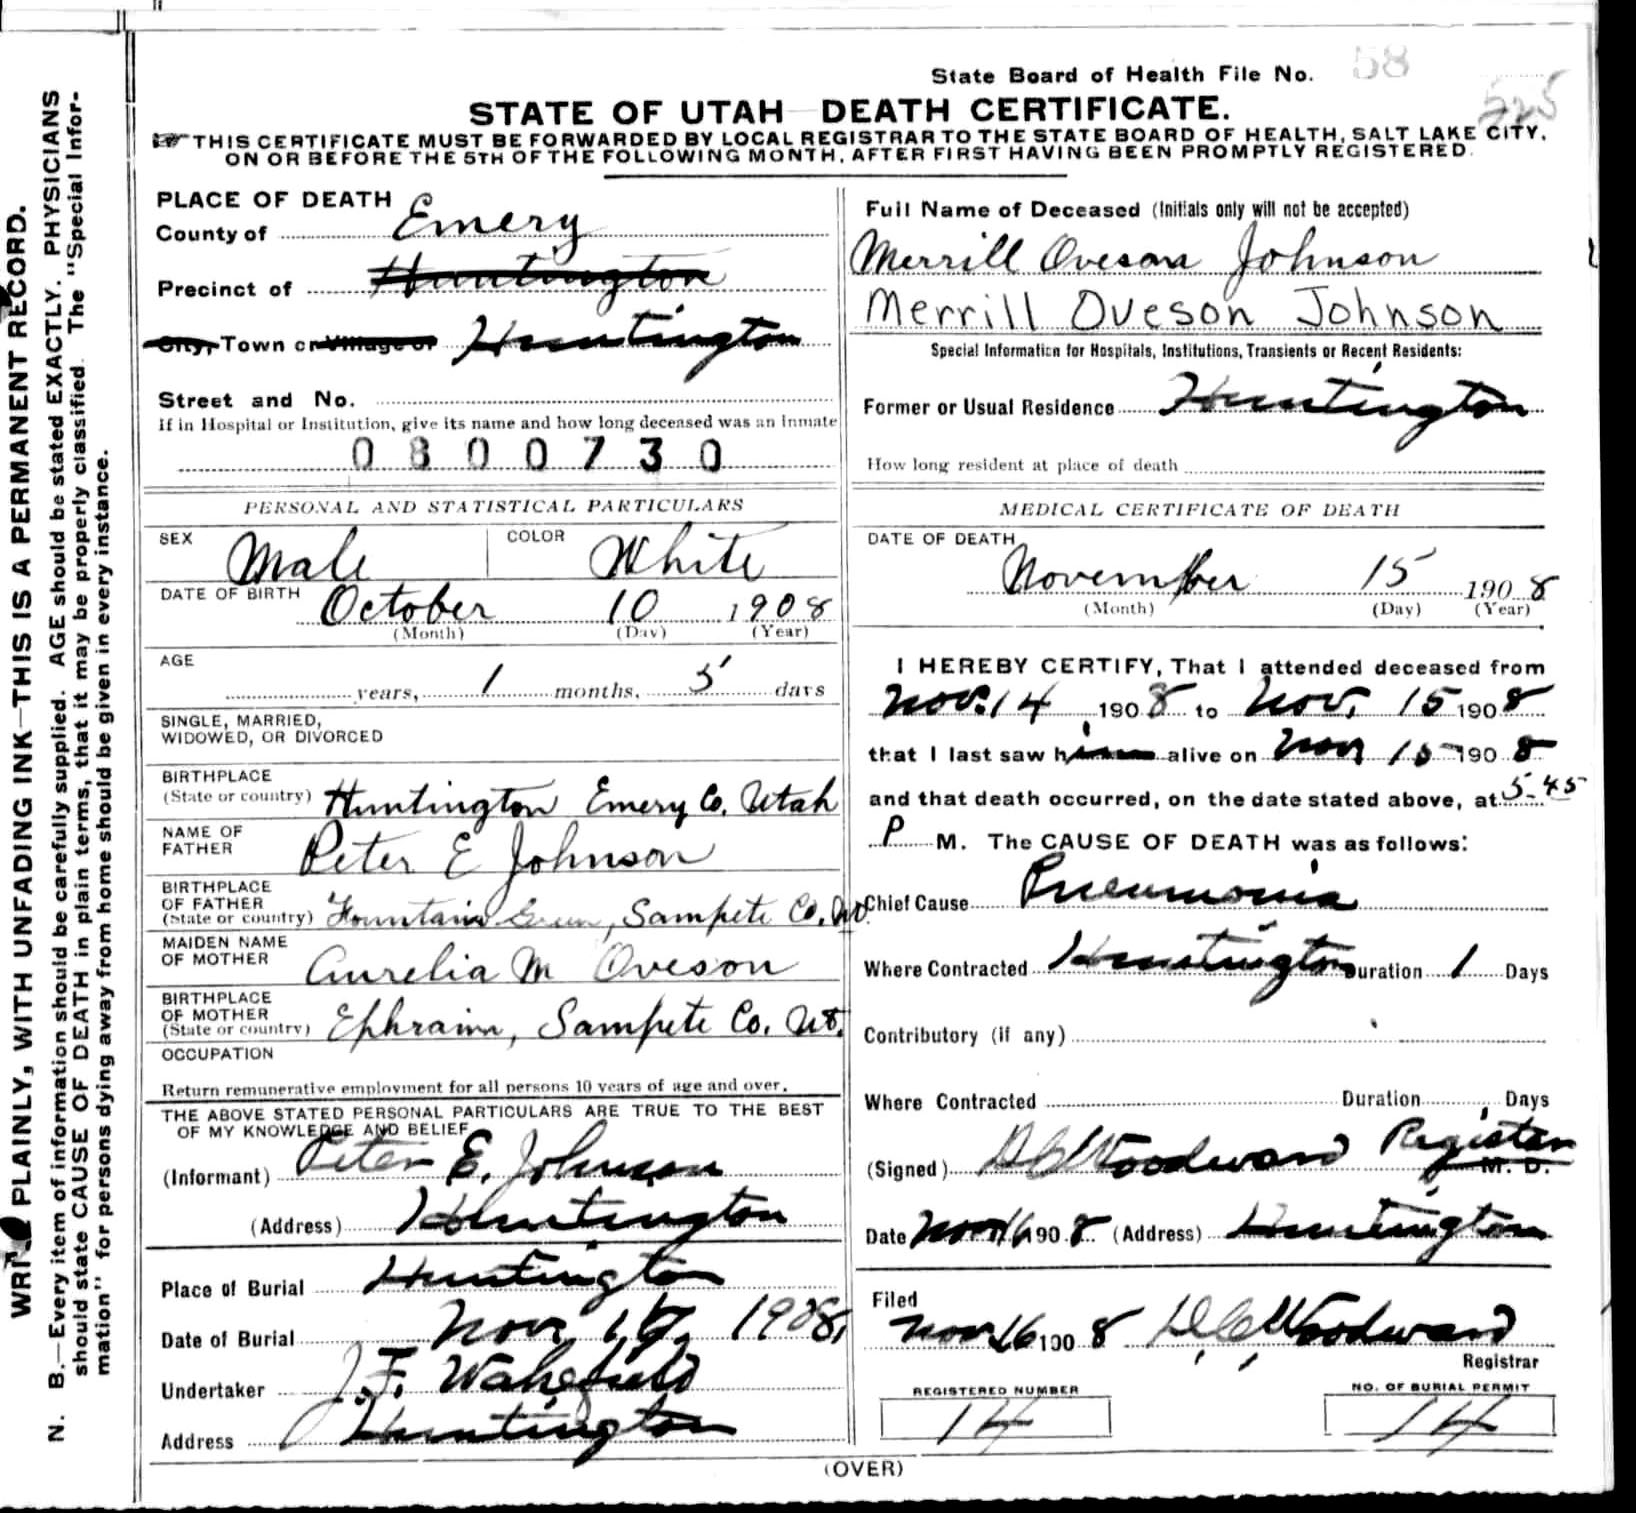 State Board of Health File No. 58
525
STATE OF UTAH—DEATH CERTIFICATE.
THIS CERTIFICATE MUST BE FORWARDED BY LOCAL REGISTRAR TO THE STATE BOARD OF HEALTH, SALT LAKE CITY,
ON OR BEFORE THE 5TH OF THE FOLLOWING MONTH, AFTER FIRST HAVING BEEN PROMPTLY REGISTERED.
PLACE OF DEATH
County of Emery
Precinct of Huntington
City, Town or Village of Huntington
Street and No.
If in Hospital or Institution, give its name and how long deceased was an inmate
0800730
PERSONAL AND STATISTICAL PARTICULARS
SEX Male COLOR White
DATE OF BIRTH October 10 1908
(Month) (Day) (Year)
AGE years, 1 months, 5 days
SINGLE, MARRIED,
WIDOWED, OR DIVORCED
BIRTHPLACE
(State or country) Huntington Emery Co. Utah
NAME OF
FATHER Peter E Johnson
BIRTHPLACE
OF FATHER
(State or country) Fountain Green, Sampete Co. Ut.
MAIDEN NAME
OF MOTHER Aurelia M Oveson
BIRTHPLACE
OF MOTHER
(State or country) Ephraim, Sampete Co. Ut.
OCCUPATION
Return remunerative employment for all persons 10 years of age and over.
THE ABOVE STATED PERSONAL PARTICULARS ARE TRUE TO THE BEST
OF MY KNOWLEDGE AND BELIEF
(Informant) Peter E. Johnson
(Address) Huntington
Place of Burial Huntington
Date of Burial Nov. 1908.
Undertaker J. F. Wakefield
Address Huntington
Full Name of Deceased (Initials only will not be accepted)
Merrill Oveson Johnson
Merrill Oveson Johnson
Special Information for Hospitals, Institutions, Transients or Recent Residents:
Former or Usual Residence Huntington
How long resident at place of death
MEDICAL CERTIFICATE OF DEATH
DATE OF DEATH
November 15 1908
(Month) (Day) (Year)
I HEREBY CERTIFY, That I attended deceased from
Nov. 14 1908 to Nov. 15 1908
that I last saw him alive on Nov 15 1908
and that death occurred, on the date stated above, at 5-45
P M. The CAUSE OF DEATH was as follows:
Chief Cause Pneumonia
Where Contracted Huntington Duration 1 Days
Contributory (if any)
Where Contracted Duration Days
(Signed) D C Woodward Register M. D.
Date Nov 16 1908 (Address) Huntington
Filed
Nov 16 1908 D C Woodward
Registrar
REGISTERED NUMBER
14
NO. OF BURIAL PERMIT
14
(OVER)
WRITE PLAINLY, WITH UNFADING INK—THIS IS A PERMANENT RECORD.
N. B.—Every item of information should be carefully supplied. AGE should be stated EXACTLY. PHYSICIANS
should state CAUSE OF DEATH in plain terms, that it may be properly classified. The "Special Infor-
mation" for persons dying away from home should be given in every instance.